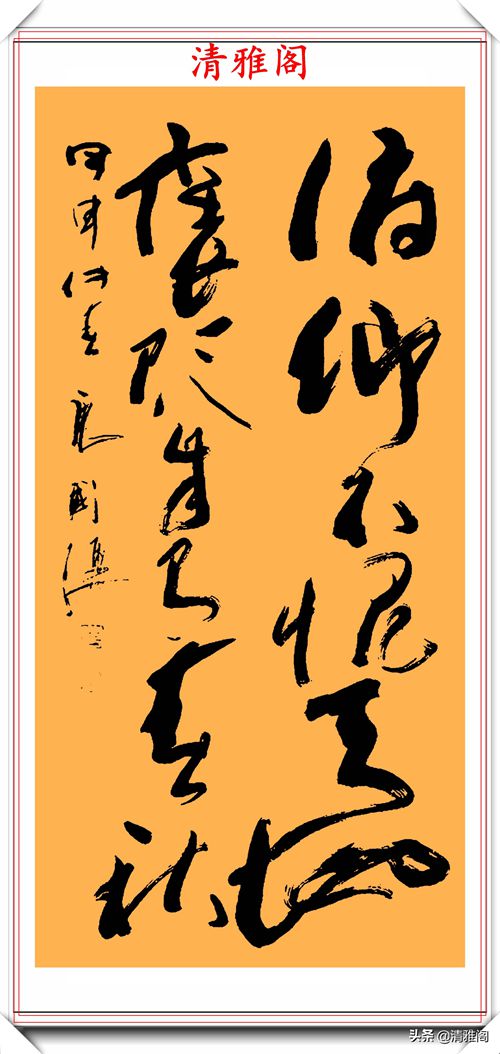 清雅阁
俯仰不愧天地
褒貶自有春秋
甲申仲春
头条 @清雅阁